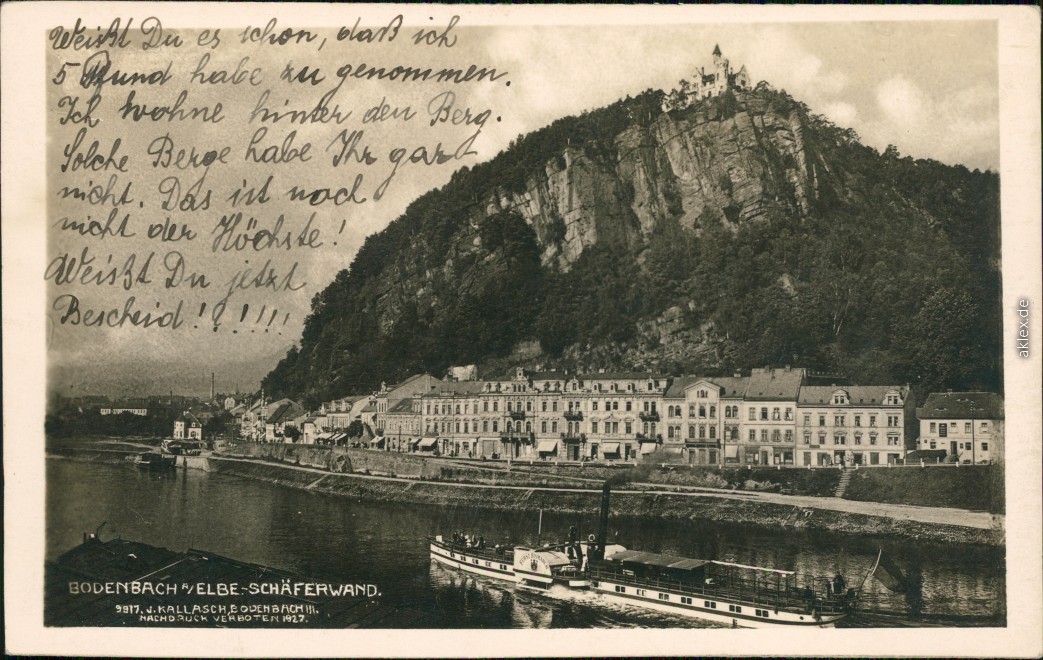 Weißt Du es schon, daß ich
5 Pfund habe zu genommen.
Ich wohne hinter den Berg.
Solche Berge habe Ihr gar
nicht. Das ist noch
nicht der Höchste!
Weißt Du jetzt
Bescheid!!!!!!
BODENBACH A/ELBE.-SCHÄFERWAND.
9817. J. KALLASCH, BODENBACH III.
NACHDRUCK VERBOTEN 1927.
aklex.de